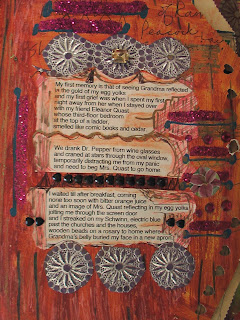 Peacock
My first memory is that of seeing Grandma reflected
in the gold of my egg yolks
and my first grief was when I spent my first
night away from her when I stayed over
with my friend Eleanor Quast
whose third-floor bedroom
at the top of a ladder,
smelled like comic books and cedar.
We drank Dr. Pepper from wine glasses
and craned at stars through the oval window,
temporarily distracting me from my panic
and need to beg Mrs. Quast to go home.
I waited till after breakfast, coming
none too soon with bitter orange juice
and an image of Mrs. Quast reflecting in my egg yolks
jutting me through the screen door
and I streaked on my Schwinn, electric blue
past the churches and the houses,
wooden beads on a rosary to home where
Grandma's belly buried my face in a new apron.